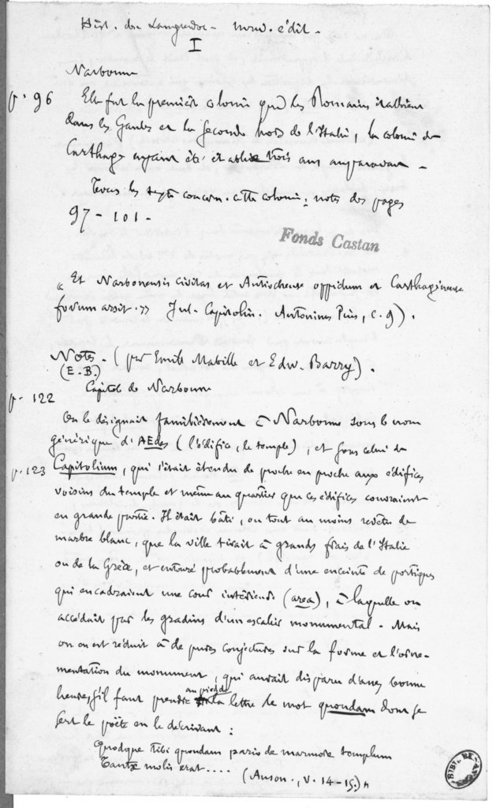 Hist. du Languedoc - nouv. édit.
I
Narbonne
p. 96 Elle fut la première colonie que les Romains établirent
dans les Gaules et la seconde hors de l'Italie, la colonie de
Carthage ayant été établie trois ans auparavant -
Tous les textes concern. cette colonie : notes des pages
97 - 101 -
Fonds Castan
« Et Narbonensis civitas et Antiochense oppidum et Carthaginense
forum arsit. » Jul. Capitolin. Antoninus Pius, c. 9).
Notes. (par Emile Mabille et Edw. Barry).
(E. B.)
Capitole de Narbonne
p. 122
On le désignait familièrement à Narbonne sous le nom
générique d'AEdes (l'édifice, le temple), et sous celui de
p. 123 Capitolium, qui s'était étendu de proche en proche aux édifices
voisins du temple et même au quartier que ces édifices couvraient
en grande partie. Il était bâti, ou tout au moins revêtu de
marbre blanc, que la ville tirait à grands frais de l'Italie
ou de la Grèce, et entouré probablement d'une enceinte de portiques
qui encadraient une cour intérieure (area), à laquelle on
accédait par les gradins d'un escalier monumental. Mais
on en est réduit à de pures conjectures sur la forme et l'orne-
mentation du monument, qui aurait disparu d'assez bonne
heure, s'il faut prendre au pied de la lettre le mot quondam dont se
sert le poète en le décrivant :
Quodque tibi quondam pario de marmore templum
Tantae molis erat.... (Auson., v. 14-15.) »